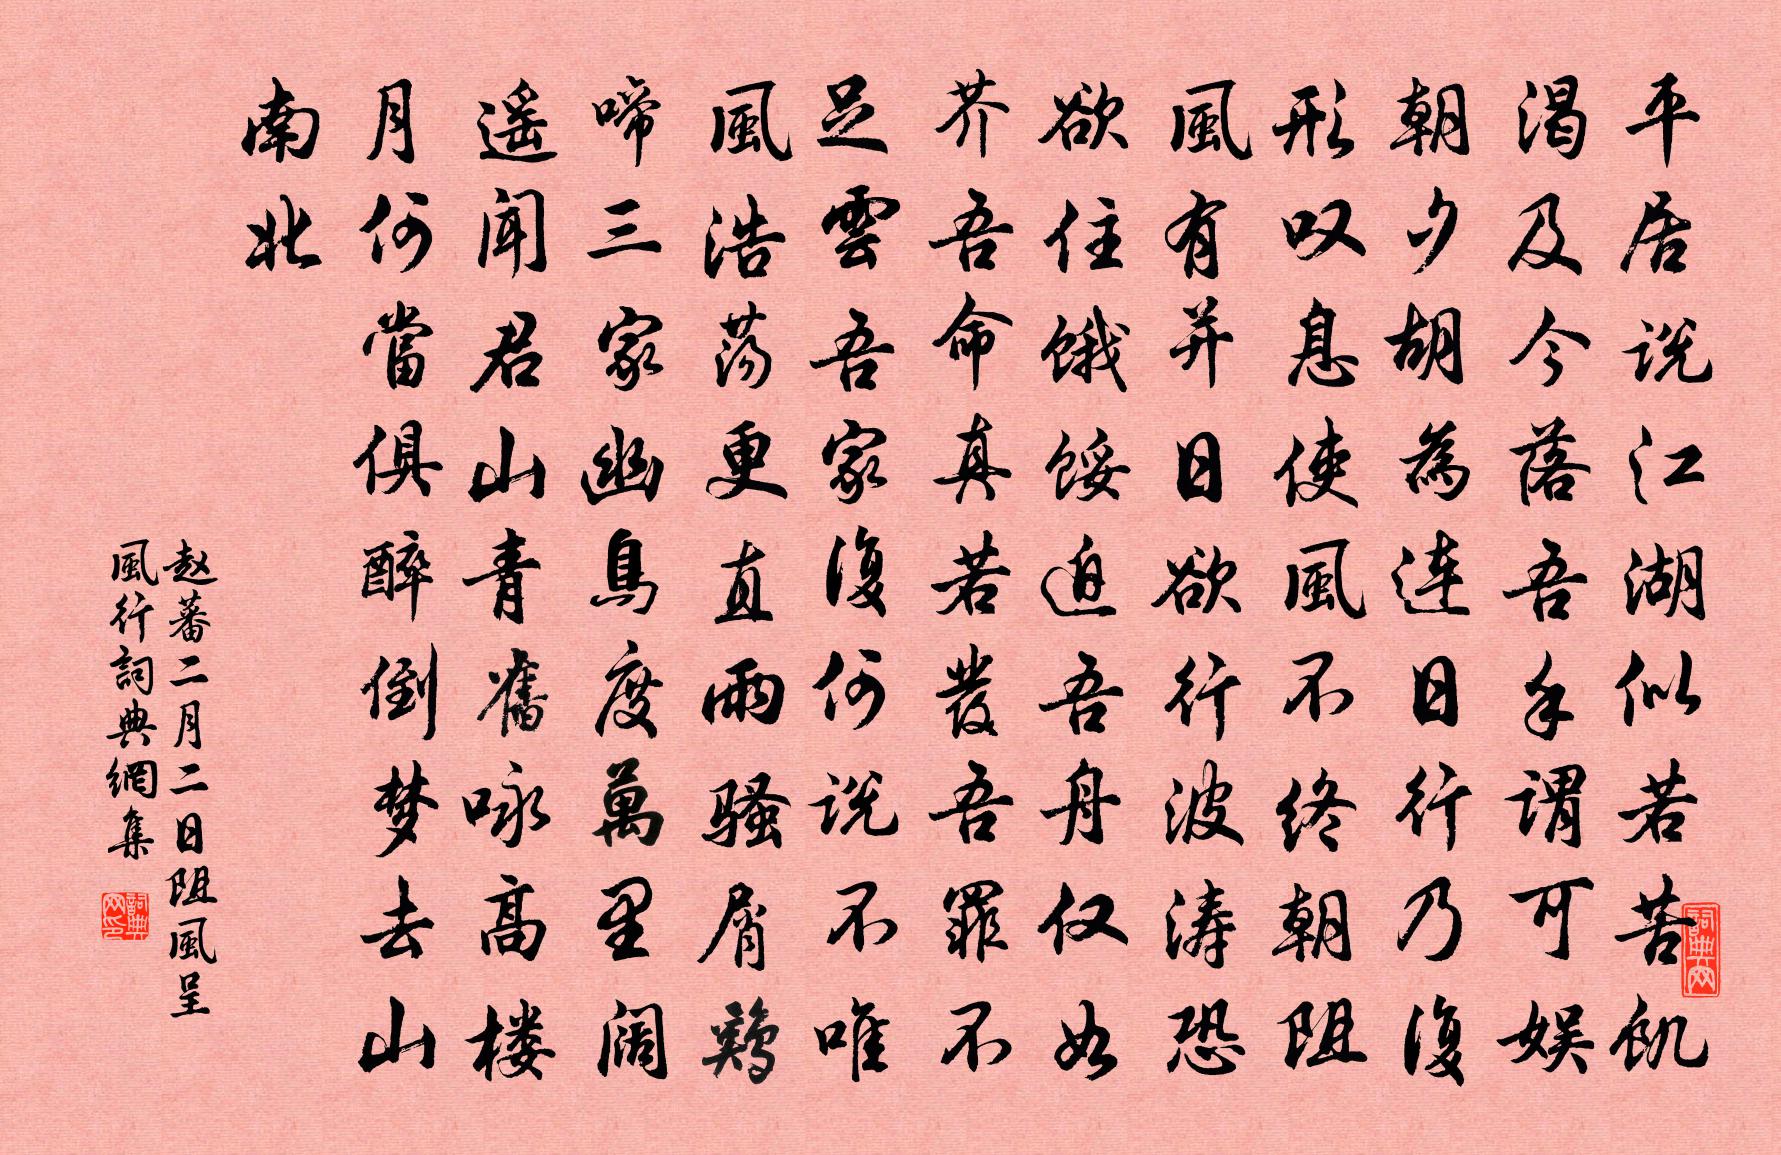 平居说江湖似若苦飢
渴及今落吾手谓可娱
朝夕胡為连日行乃復
形叹息使風不终朝阻
風有并日欲行波涛恐
欲住饿馁迫吾舟仅如
芥吾命真若發吾罪不
足雲吾家復何说不唯
風浩荡更直雨骚屑鶏
啼三家幽鳥度萬里阔
遥闻君山青舊咏高楼
月何當俱醉倒梦去山
南北
赵蕃二月二日阻風呈
風行詞典網集
詞典网
詞典网印